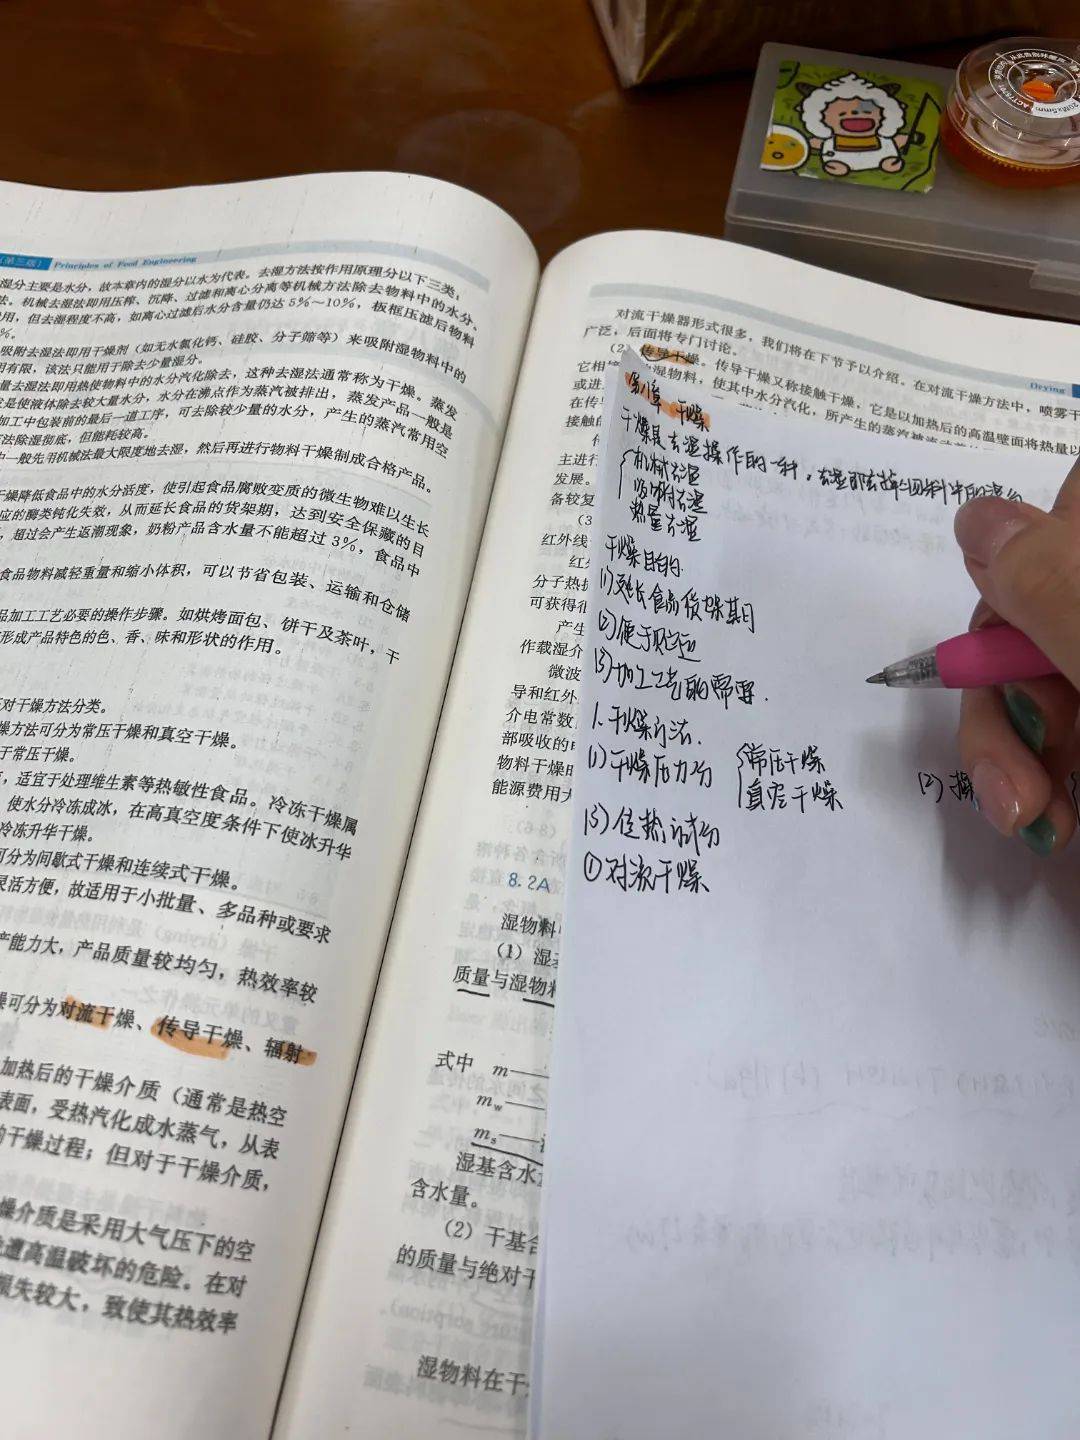 (第三版) Principles of Food Engineering
湿分主要是水分，故本章内的湿分以水为代表。去湿方法按作用原理分以下三类：
法。机械去湿法即用压榨、沉降、过滤和离心分离等机械方法除去物料中的水分。
用，但去湿程度不高，如离心过滤后水分含量仍达5%～10%，板框压滤后物料
%。
吸附去湿法即用干燥剂（如无水氯化钙、硅胶、分子筛等）来吸附湿物料中的
用有限，该法只能用于除去少量湿分。
量去湿法即用热使物料中的水分汽化除去，这种去湿法通常称为干燥。蒸发
发是使液体除去较大量水分，水分在沸点作为蒸汽被排出，蒸发产品一般是
加工中包装前的最后一道工序，可去除较少量的水分，产生的蒸汽常用空
方法除湿彻底，但能耗较高。
中一般先用机械法最大限度地去湿，然后再进行物料干燥制成合格产品。
干燥降低食品中的水分活度，使引起食品腐败变质的微生物难以生长
应的酶类钝化失效，从而延长食品的货架期，达到安全保藏的目
，超过会产生返潮现象，奶粉产品含水量不能超过3%，食品中
食品物料减轻重量和缩小体积，可以节省包装、运输和仓储
品加工工艺必要的操作步骤。如烘烤面包、饼干及茶叶，干
形成产品特色的色、香、味和形状的作用。
对干燥方法分类。
燥方法可分为常压干燥和真空干燥。
于常压干燥。
，适宜于处理维生素等热敏性食品。冷冻干燥属
使水分冷冻成冰，在高真空度条件下使冰升华
冷冻升华干燥。
可分为间歇式干燥和连续式干燥。
灵活方便，故适用于小批量、多品种或要求
产能力大，产品质量较均匀，热效率较
燥可分为对流干燥、传导干燥、辐射
加热后的干燥介质（通常是热空
表面，受热汽化成水蒸气，从表
的干燥过程；但对于干燥介质，
燥介质是采用大气压下的空
遭高温破坏的危险。在对
损失较大，致使其热效率
Drying
对流干燥器形式很多，我们将在下节予以介绍。在对流干燥方法中，喷雾干
广泛，后面将专门讨论。
（2）传导干燥。传导干燥又称接触干燥，它是以加热后的高温壁面将热量以
它相 湿物料，使其中水分汽化，所产生的蒸汽被
或进
在传导
接触的
主进行
发展。
备较复
（3
红外线
红
分子热
可获得
产生
作载湿介
微波
导和红外
介电常数
部吸收的
物料干燥
能源费用
8.2A
湿物料
（1）湿基
质量与湿物料
式中 m——
mw——
ms——
湿基含水
含水量。
（2）干基含
的质量与绝对干
湿物料在干
第8章 干燥
干燥是去湿操作的一种，去湿即去掉
机械去湿
吸附去湿
热量去湿
干燥目的
(1)延长食品货架期
(2)便于贮运
(3)加工工艺的需要.
1.干燥方法.
(1)干燥压力分
常压干燥
真空干燥
(2)操
(3)传热方式分
①对流干燥
20M×5mm